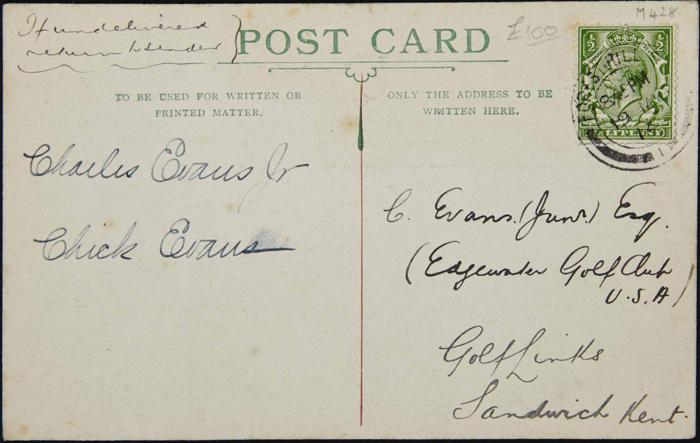 If undelivered
return to sender
£100
M428
POST CARD
TO BE USED FOR WRITTEN OR
PRINTED MATTER.
ONLY THE ADDRESS TO BE
WRITTEN HERE.
Charles Evans Jr
Chick Evans
C. Evans. (Junr.) Esq.
(Edgewater Golf Club
U.S.A)
Golf Links
Sandwich Kent.
½ ½
HILL